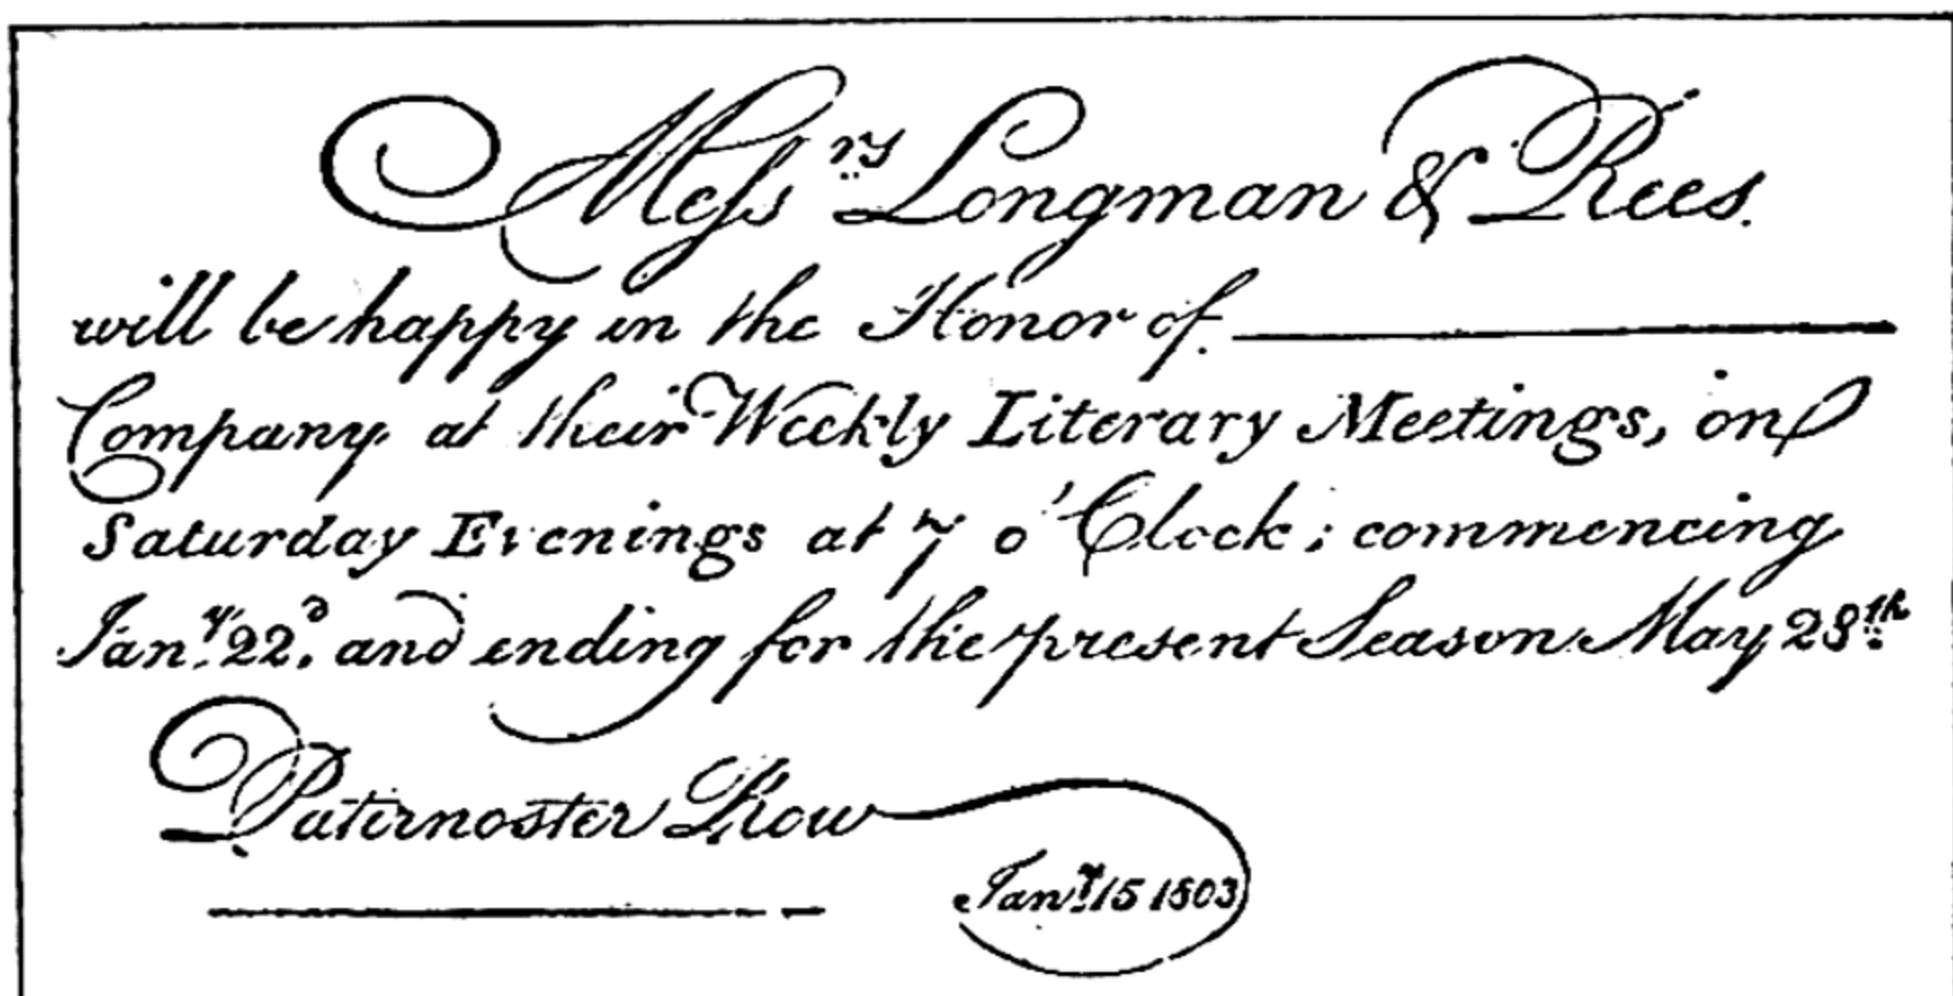 Mess.rs Longman & Rees.
will be happy in the Honor of
Company at their Weekly Literary Meetings, on
Saturday Evenings at 7 o'Clock; commencing
Jan.y 22.d and ending for the present Season May 28.th
Paternoster Row
Jan.y 15 1803